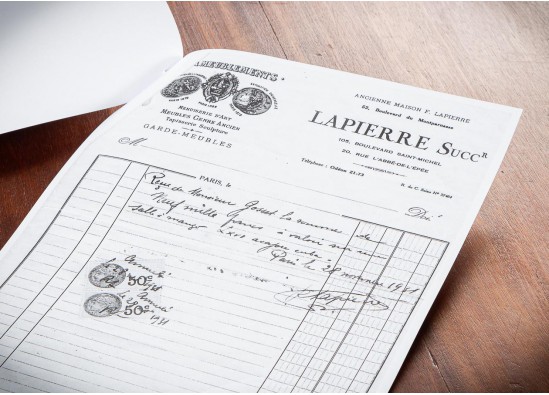 AMEUBLEMENTS
MENUISERIE D'ART
MEUBLES GENRE ANCIEN
Tapisserie Sculpture
GARDE-MEUBLES
ANCIENNE MAISON F. LAPIERRE
Boulevard du Montparnasse
LAPIERRE SUCCR
105, BOULEVARD SAINT-MICHEL
20, RUE L'ABBÉ-DE-L'ÉPÉE
Téléphone : Odéon 21-13
R. du C. Seine Nº
M
PARIS, le
Doit
Reçu de Monsieur la somme de
Neuf mille francs à valoir sur une
salle à manger
Paris le 28 novembre 1931
Lapierre
50c
50c
1931